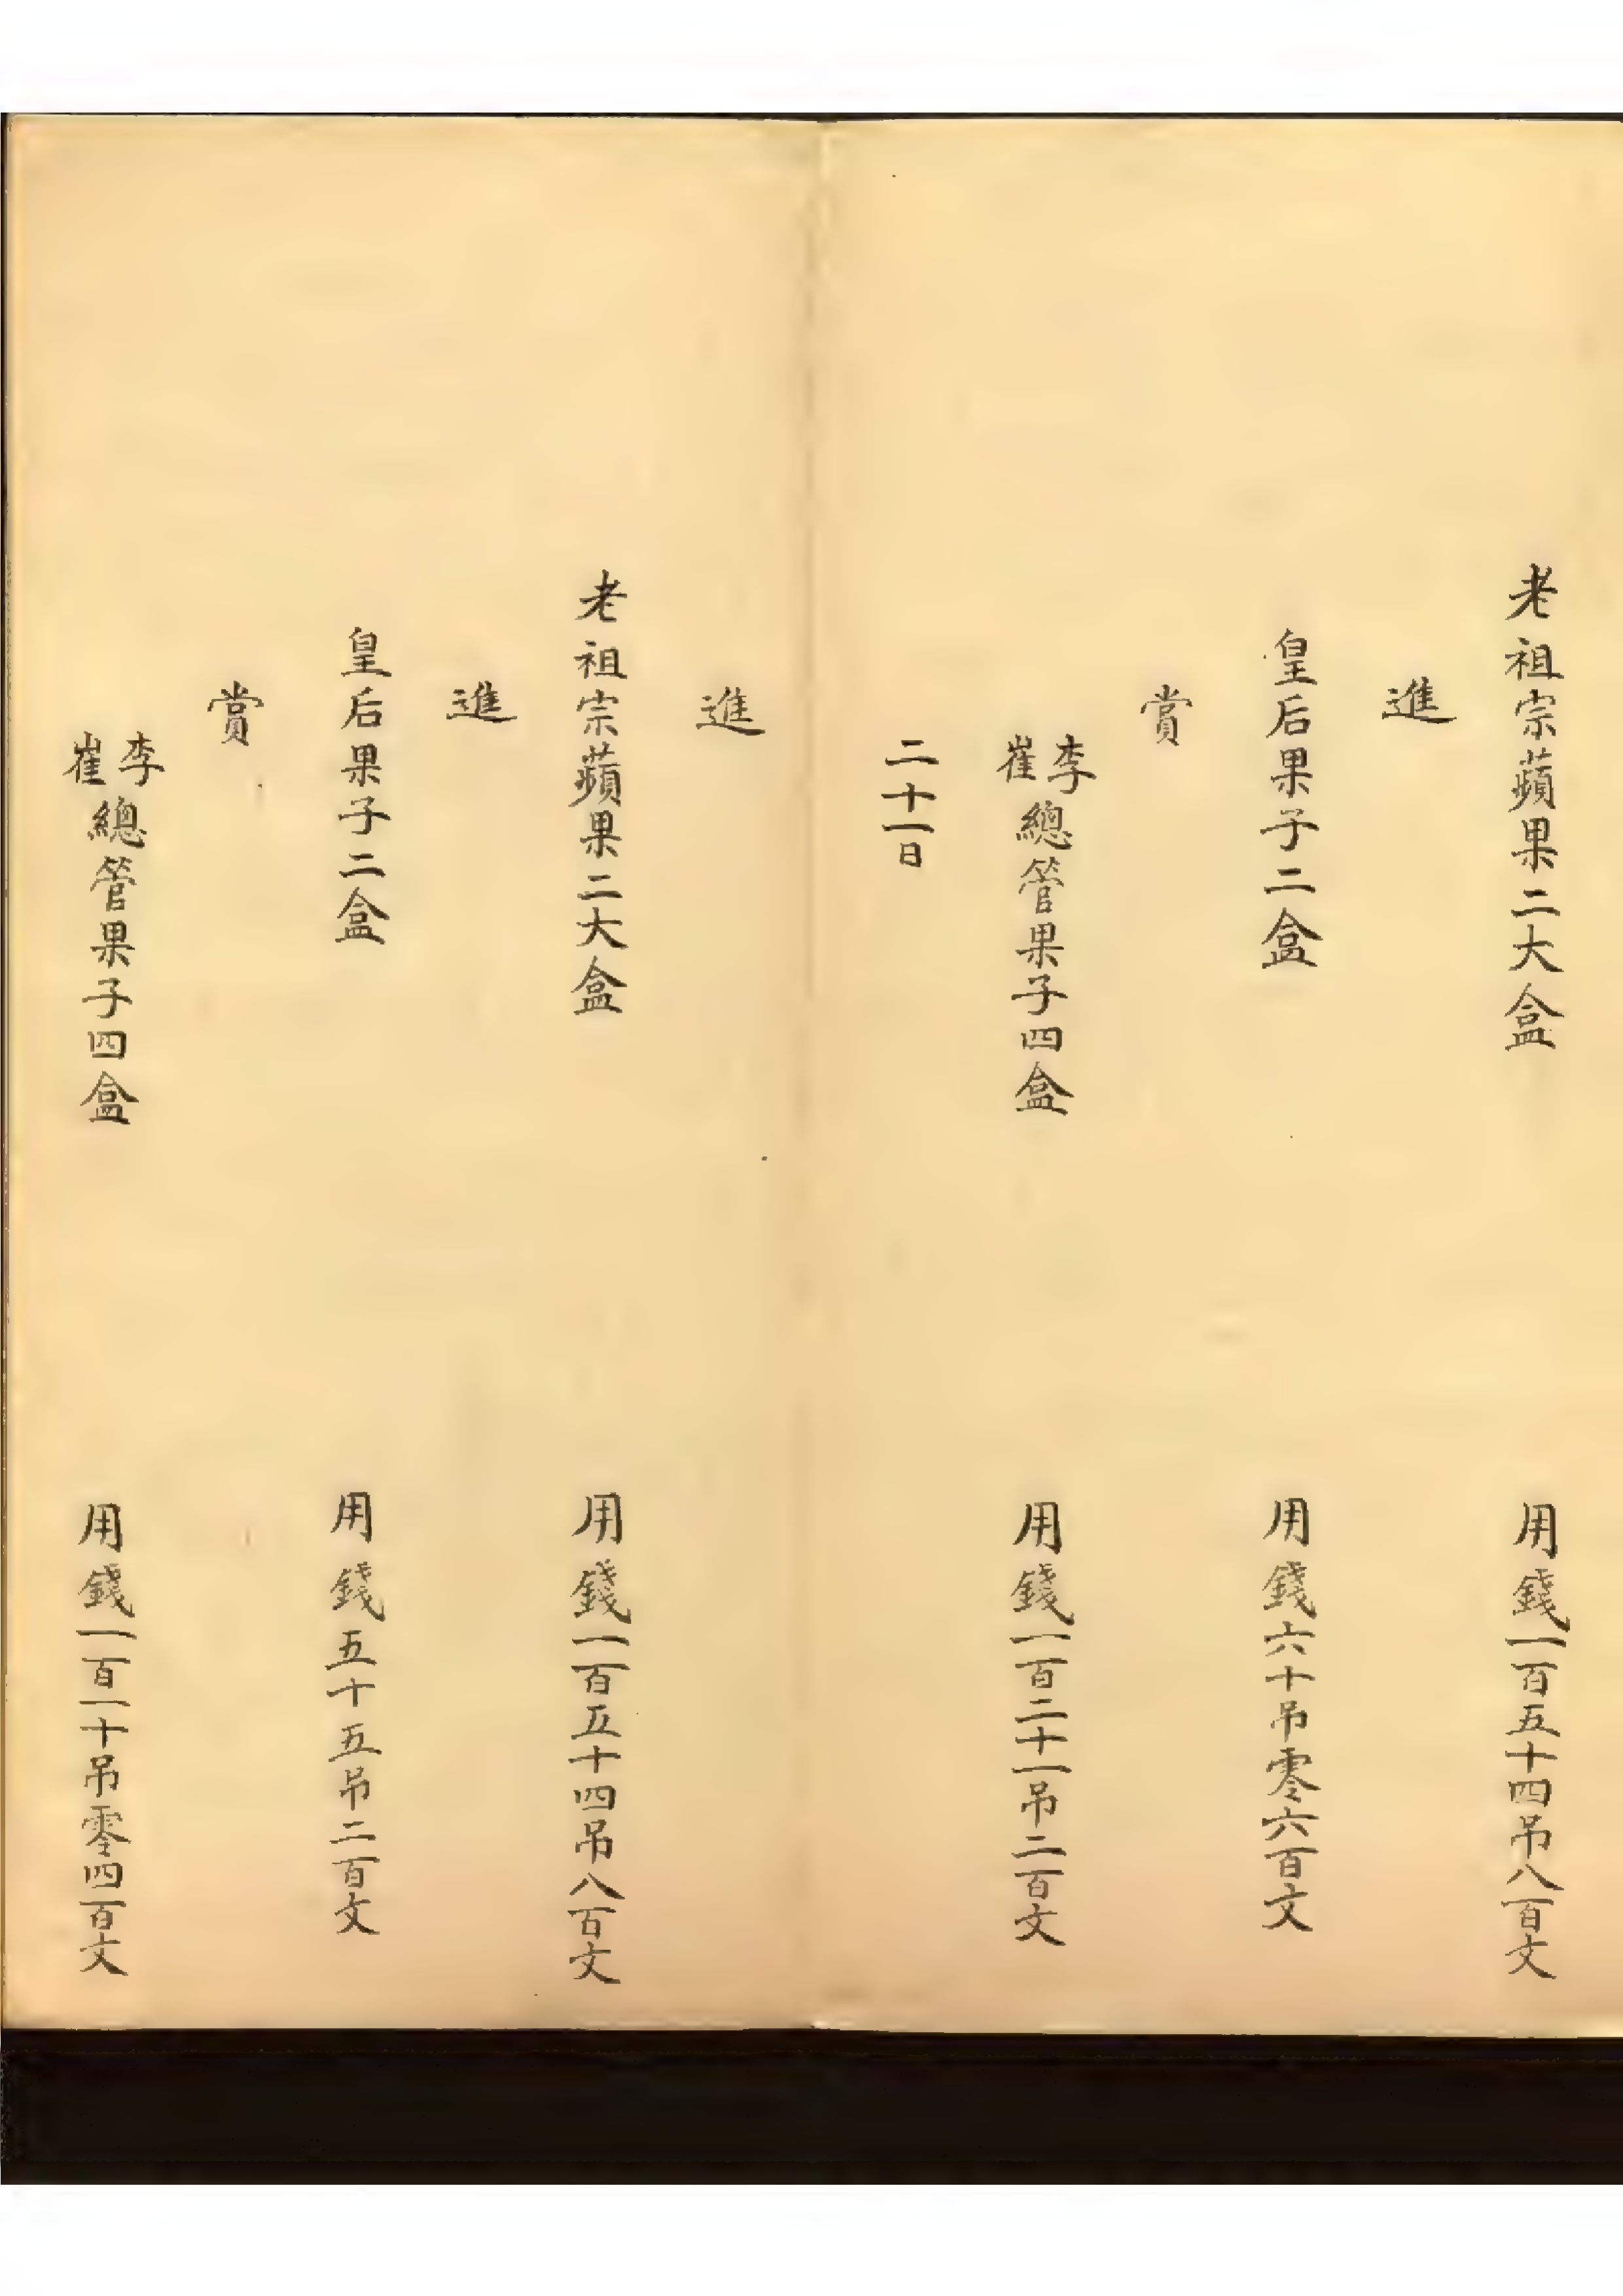 老祖宗蘋果二大盒 用錢一百五十四吊八百文
進
皇后果子二盒 用錢六十吊零六百文
賞
李崔總管果子四盒 用錢一百二十一吊二百文
二十一日
進
老祖宗蘋果二大盒 用錢一百五十四吊八百文
進
皇后果子二盒 用錢五十五吊二百文
賞
李崔總管果子四盒 用錢一百一十吊零四百文